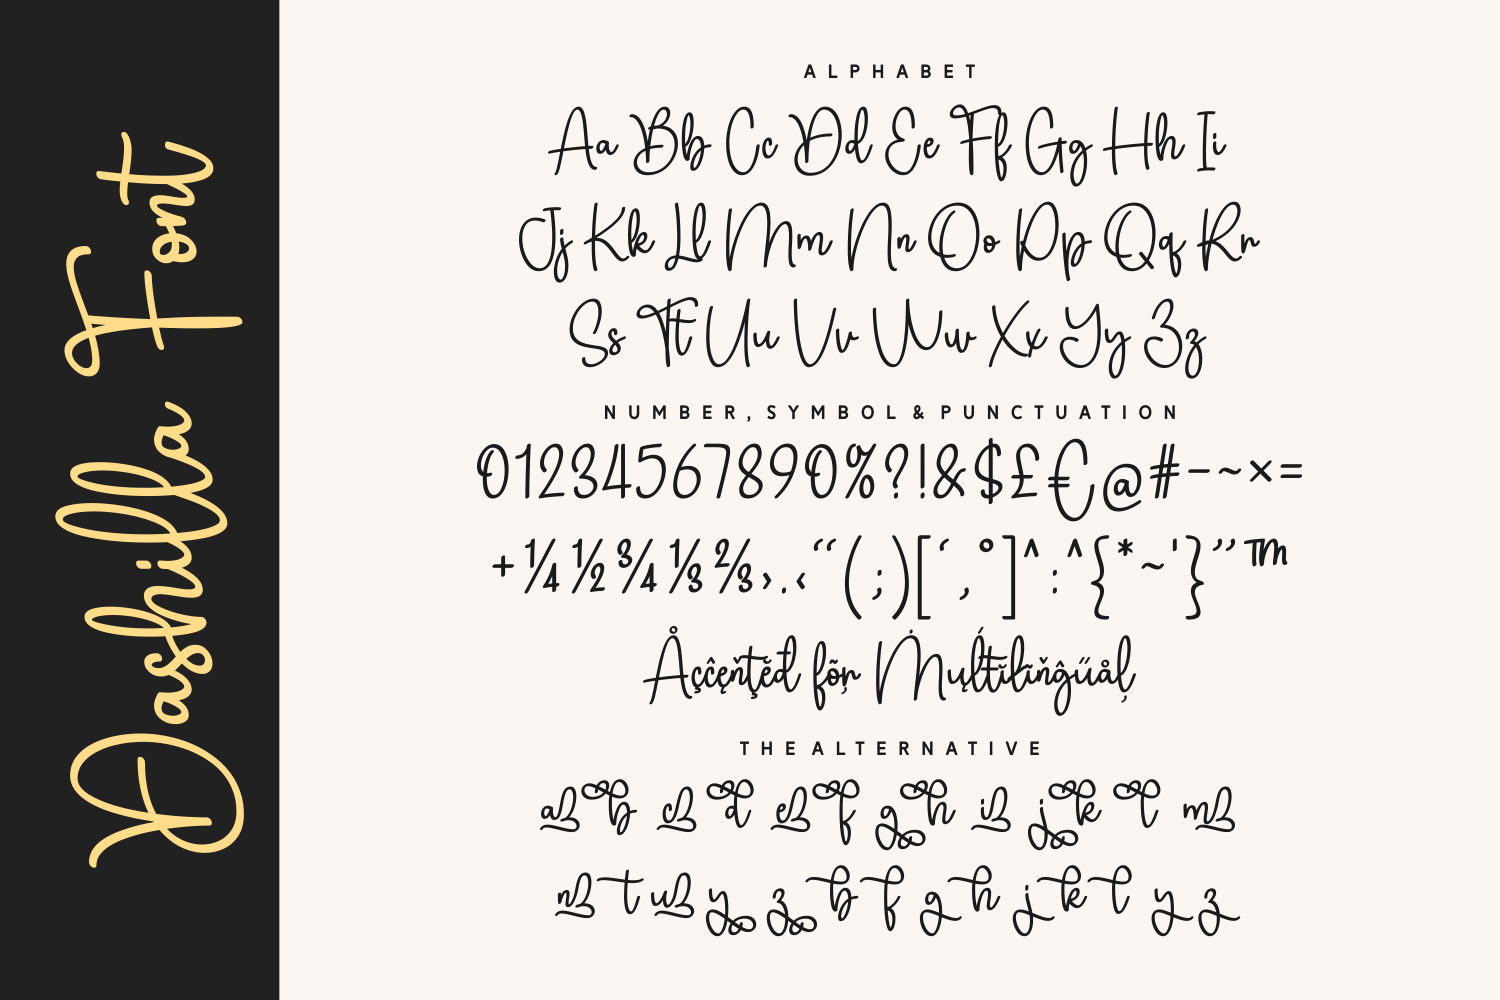 Dashilla Font
ALPHABET
Aa Bb Cc Dd Ee Ff Gg Hh Ii
Jj Kk Ll Mm Nn Oo Pp Qq Rr
Ss Tt Uu Vv Ww Xx Yy Zz
NUMBER, SYMBOL & PUNCTUATION
01234567890%?!&$£€@#-~×=
+¼½¾⅓⅔›.‹“(;)[‘,°]^:^{*~'}”™
Åçĉęňţěd fõņ Ṁųĺŧĩlïňĝűåļ
THE ALTERNATIVE
a b c d e f g h i j k l m
n t u y z b f g h j k l y z